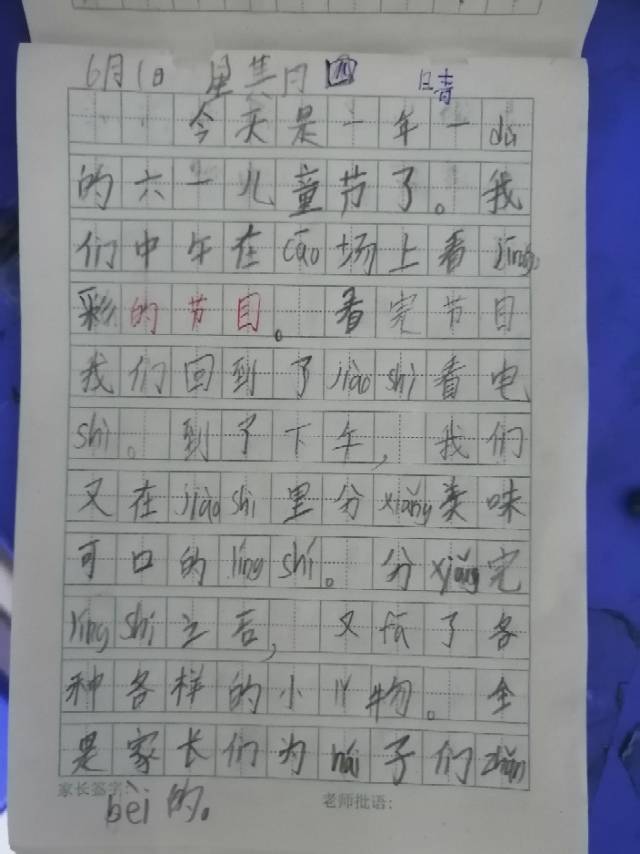 6月1日 星其日 四 晴
今天是一年一dù
的六一儿童节了。我
们中午在cāo场上看jīng
彩的节目。看完节目
我们回到了jiào shì看电
shì。到了下午,我们
又在jiào shì里分xiǎng美味
可口的líng shí。分xiǎng完
líng shí之后,又fā了各
种各样的小礼物。全
是家长们为hái子们zhǔn
bèi的。
家长签字:
老师批语: